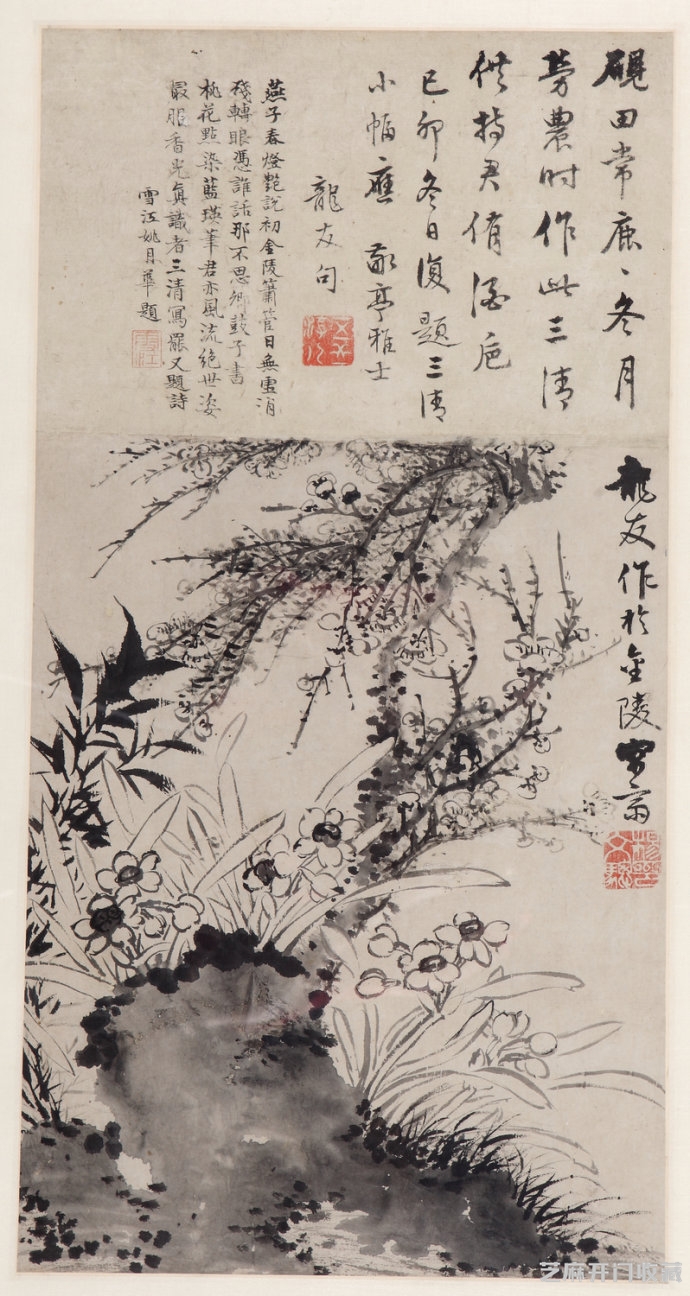 硯田常鹿〻冬月
勞農時作此三清
供持君侑酒卮
己卯冬日復題三清
小幅應 敬亭雅士
龍友句
燕子春燈艷說初金陵簫管日無虛消
殘轉眼憑誰話那不思鄉鼓子書
桃花點染藍瑛筆君亦風流絕世姿
最服香光真識者三清寫罷又題詩
雪江姚月華題
龍友作於金陵
芝麻开门收藏